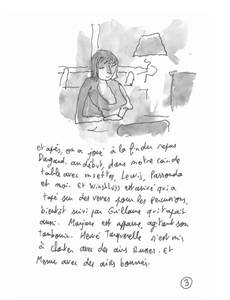 et après, on a joué à la fin du repas
Dargaud. au début, dans notre coin de
table avec misettes, Lewis, Parrondo
et moi. Et Winshluss est arrivé qui a
tapé sur des verres pour les percussions,
bientôt suivi par Guillaume qui tapait
aussi. Marjane est affairée, agitant son
tambourin. Hervé Tanquerelle s'est mis
à chanter avec des airs Russes. Et
Menu avec des airs
3